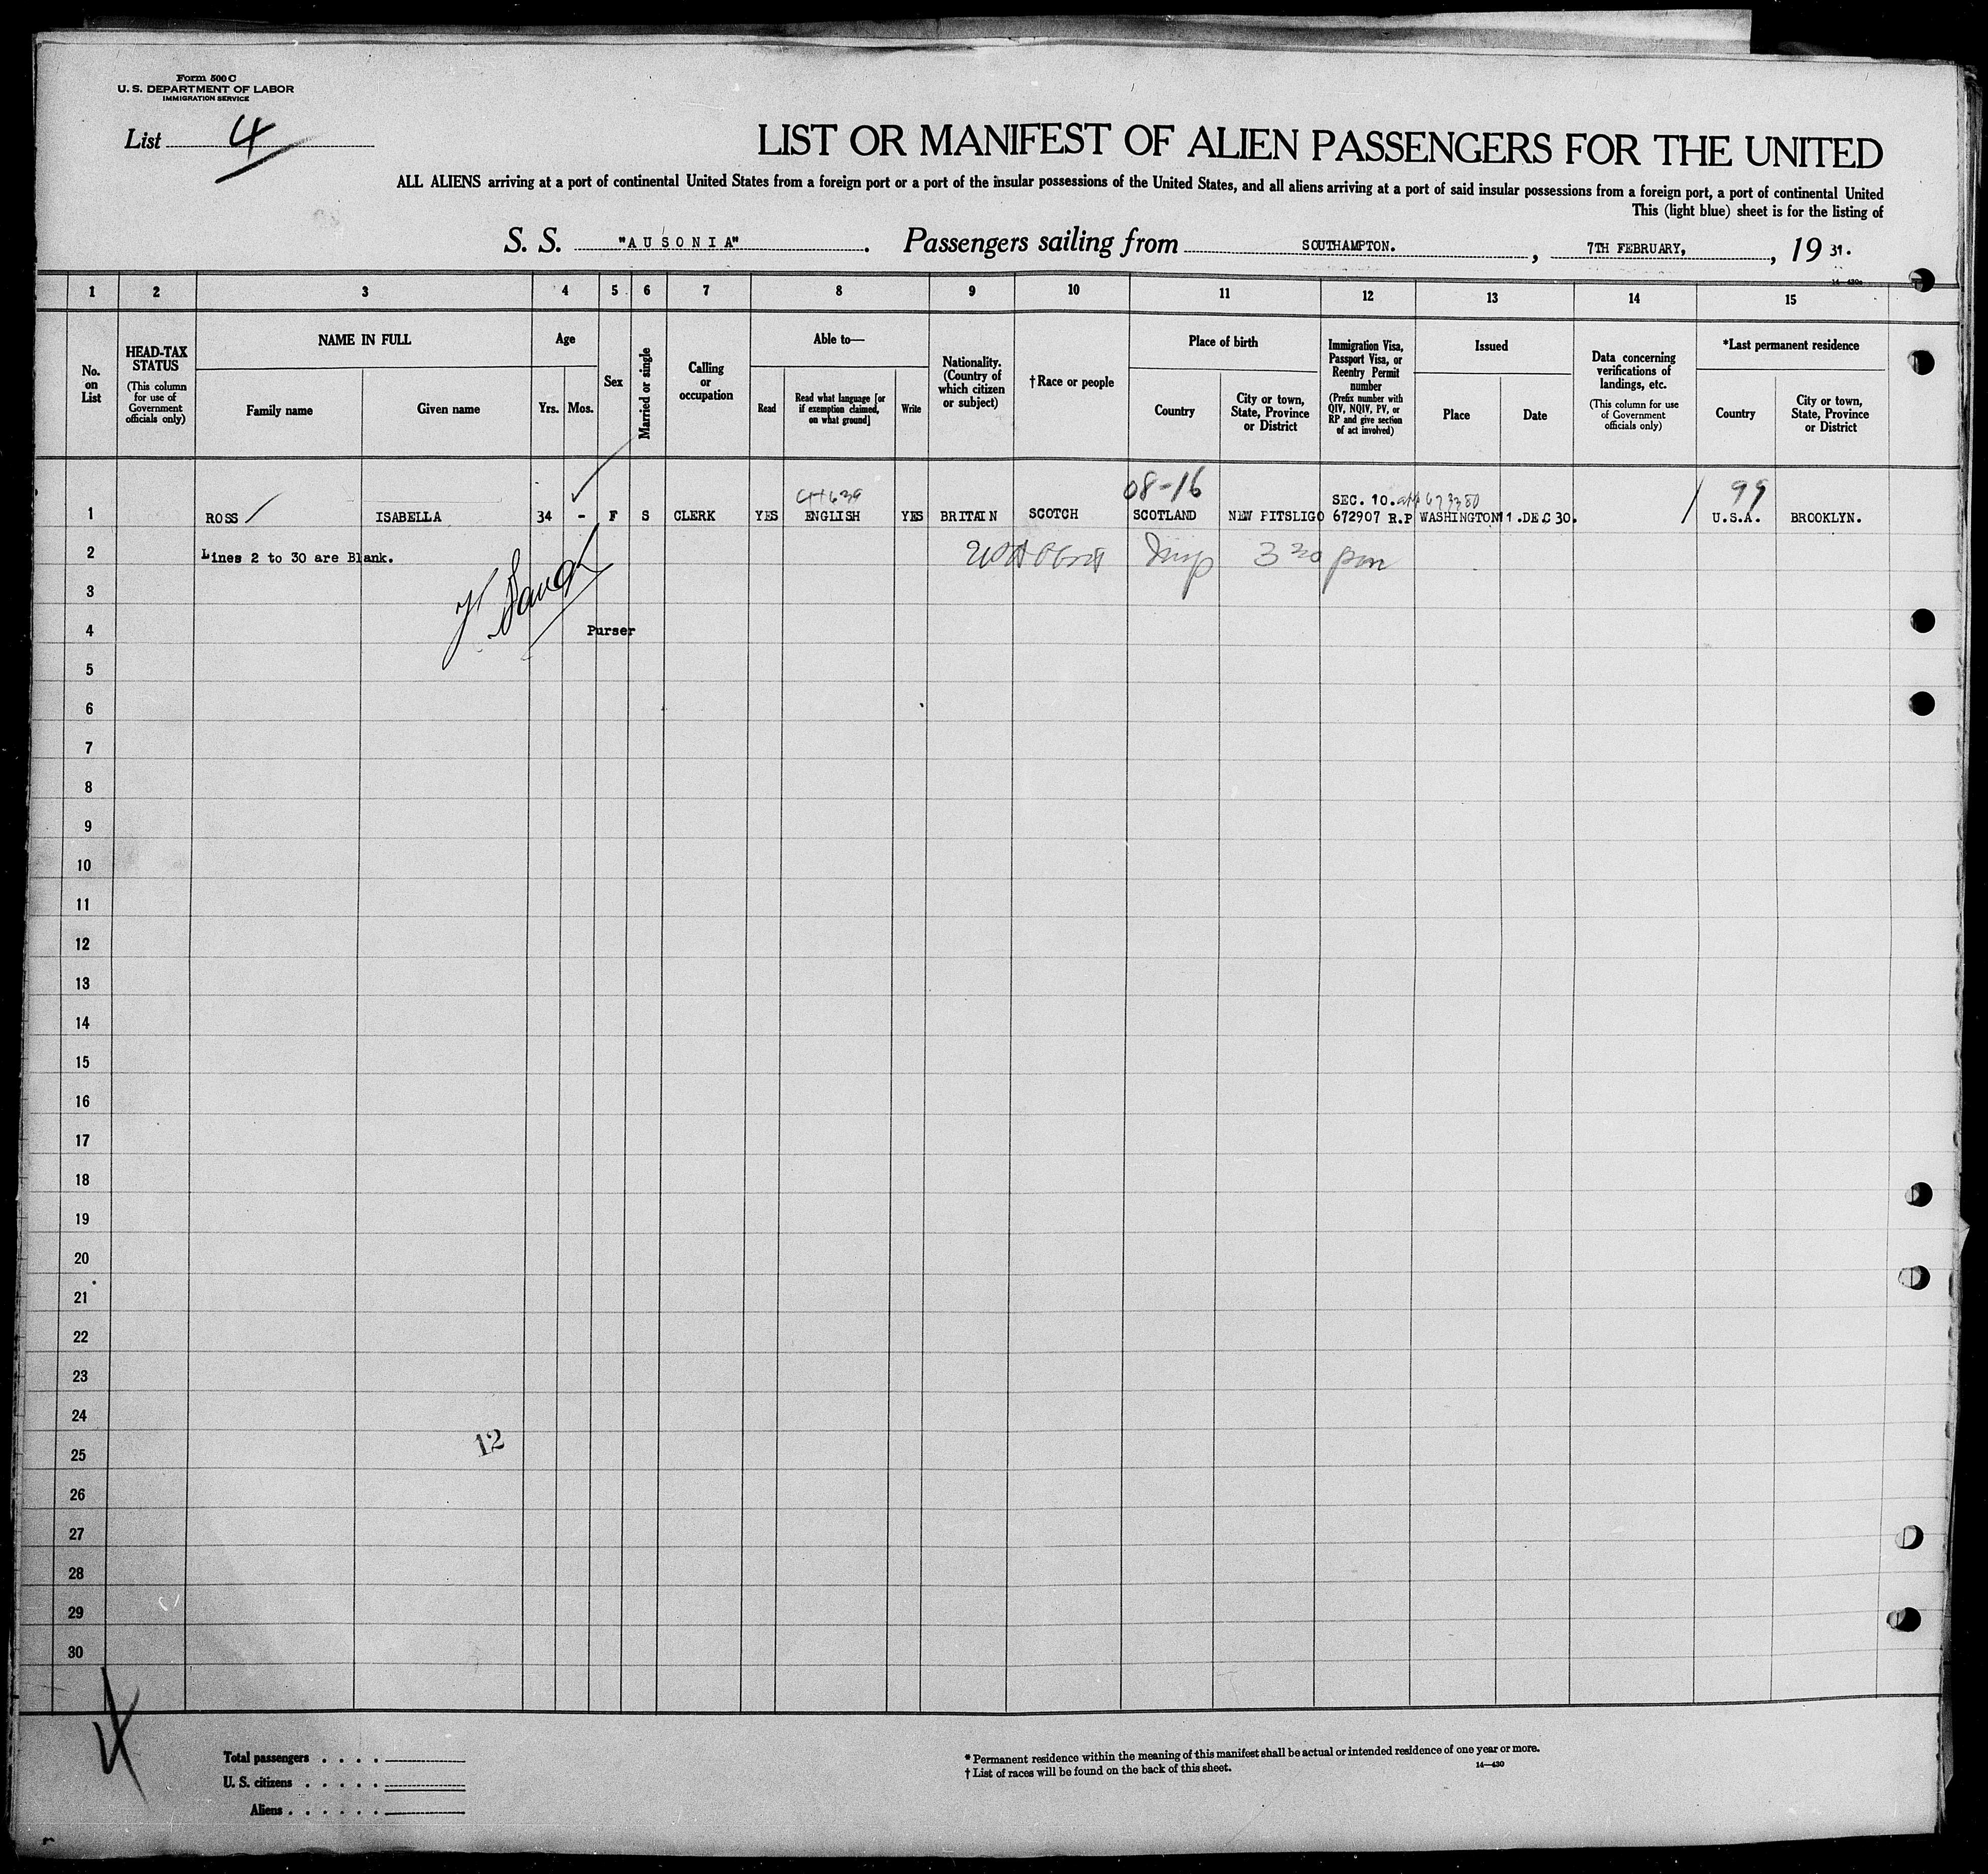 Form 500 C
U. S. DEPARTMENT OF LABOR
IMMIGRATION SERVICE
List 4
LIST OR MANIFEST OF ALIEN PASSENGERS FOR THE UNITED
ALL ALIENS arriving at a port of continental United States from a foreign port or a port of the insular possessions of the United States, and all aliens arriving at a port of said insular possessions from a foreign port, a port of continental United
This (light blue) sheet is for the listing of
S. S. "AUSONIA" . Passengers sailing from SOUTHAMPTON. , 7TH FEBRUARY, , 19 31.
14—430a
1 2 3 4 5 6 7 8 9 10 11 12 13 14 15
No. on List
HEAD-TAX STATUS
(This column for use of Government officials only)
NAME IN FULL
Family name
Given name
Age
Yrs.
Mos.
Sex
Married or single
Calling or occupation
Able to—
Read
Read what language [or if exemption claimed, on what ground]
Write
Nationality. (Country of which citizen or subject)
† Race or people
Place of birth
Country
City or town, State, Province or District
Immigration Visa, Passport Visa, or Reentry Permit number
(Prefix number with QIV, NQIV, PV, or RP and give section of act involved)
Issued
Place
Date
Data concerning verifications of landings, etc.
(This column for use of Government officials only)
*Last permanent residence
Country
City or town, State, Province or District
08-16 SEC. 10. 99
1 ROSS ISABELLA 34 - F S CLERK YES ENGLISH YES BRITAIN SCOTCH SCOTLAND NEW FITSLIGO 672907 R.P WASHINGTON 11.DEC 30. U.S.A. BROOKLYN.
2 Lines 2 to 30 are Blank. 3 30 pm
3
4 Purser
5
6
7
8
9
10
11
12
13
14
15
16
17
18
19
20
21
22
23
24
25 12
26
27
28
29
30
4
Total passengers . . . .
U. S. citizens . . . . .
Aliens . . . . . .
* Permanent residence within the meaning of this manifest shall be actual or intended residence of one year or more.
† List of races will be found on the back of this sheet.
14—430